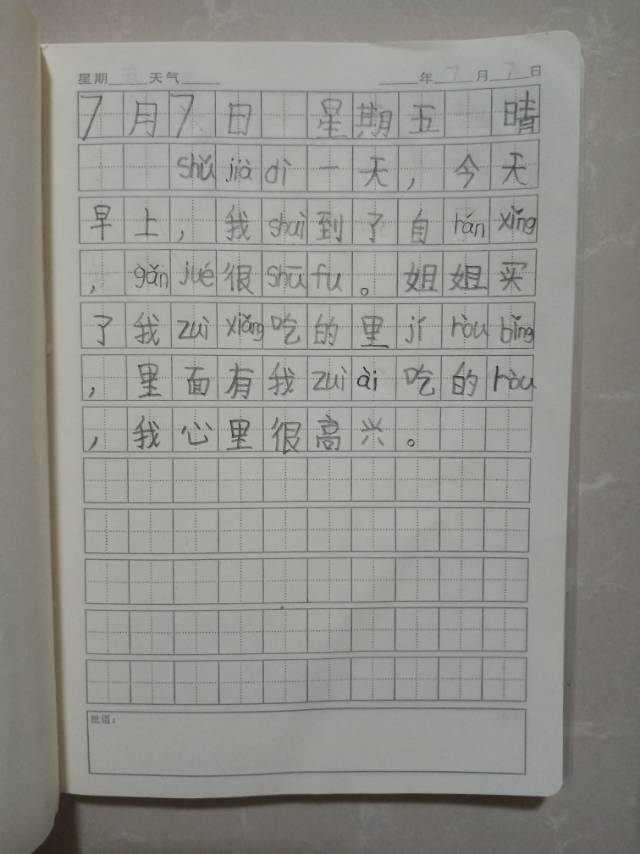 星期 五 天气
年 7 月 7 日
7月7日 星期五 晴
shǔ jià dì 一天，今天
早上，我 shuì 到了自 rán xǐng
，gǎn jué 很 shū fu。姐姐买
了我 zuì xiǎng 吃的里 jǐ ròu bǐng
，里面有我 zuì ài 吃的 ròu
，我心里很高兴。
批语：